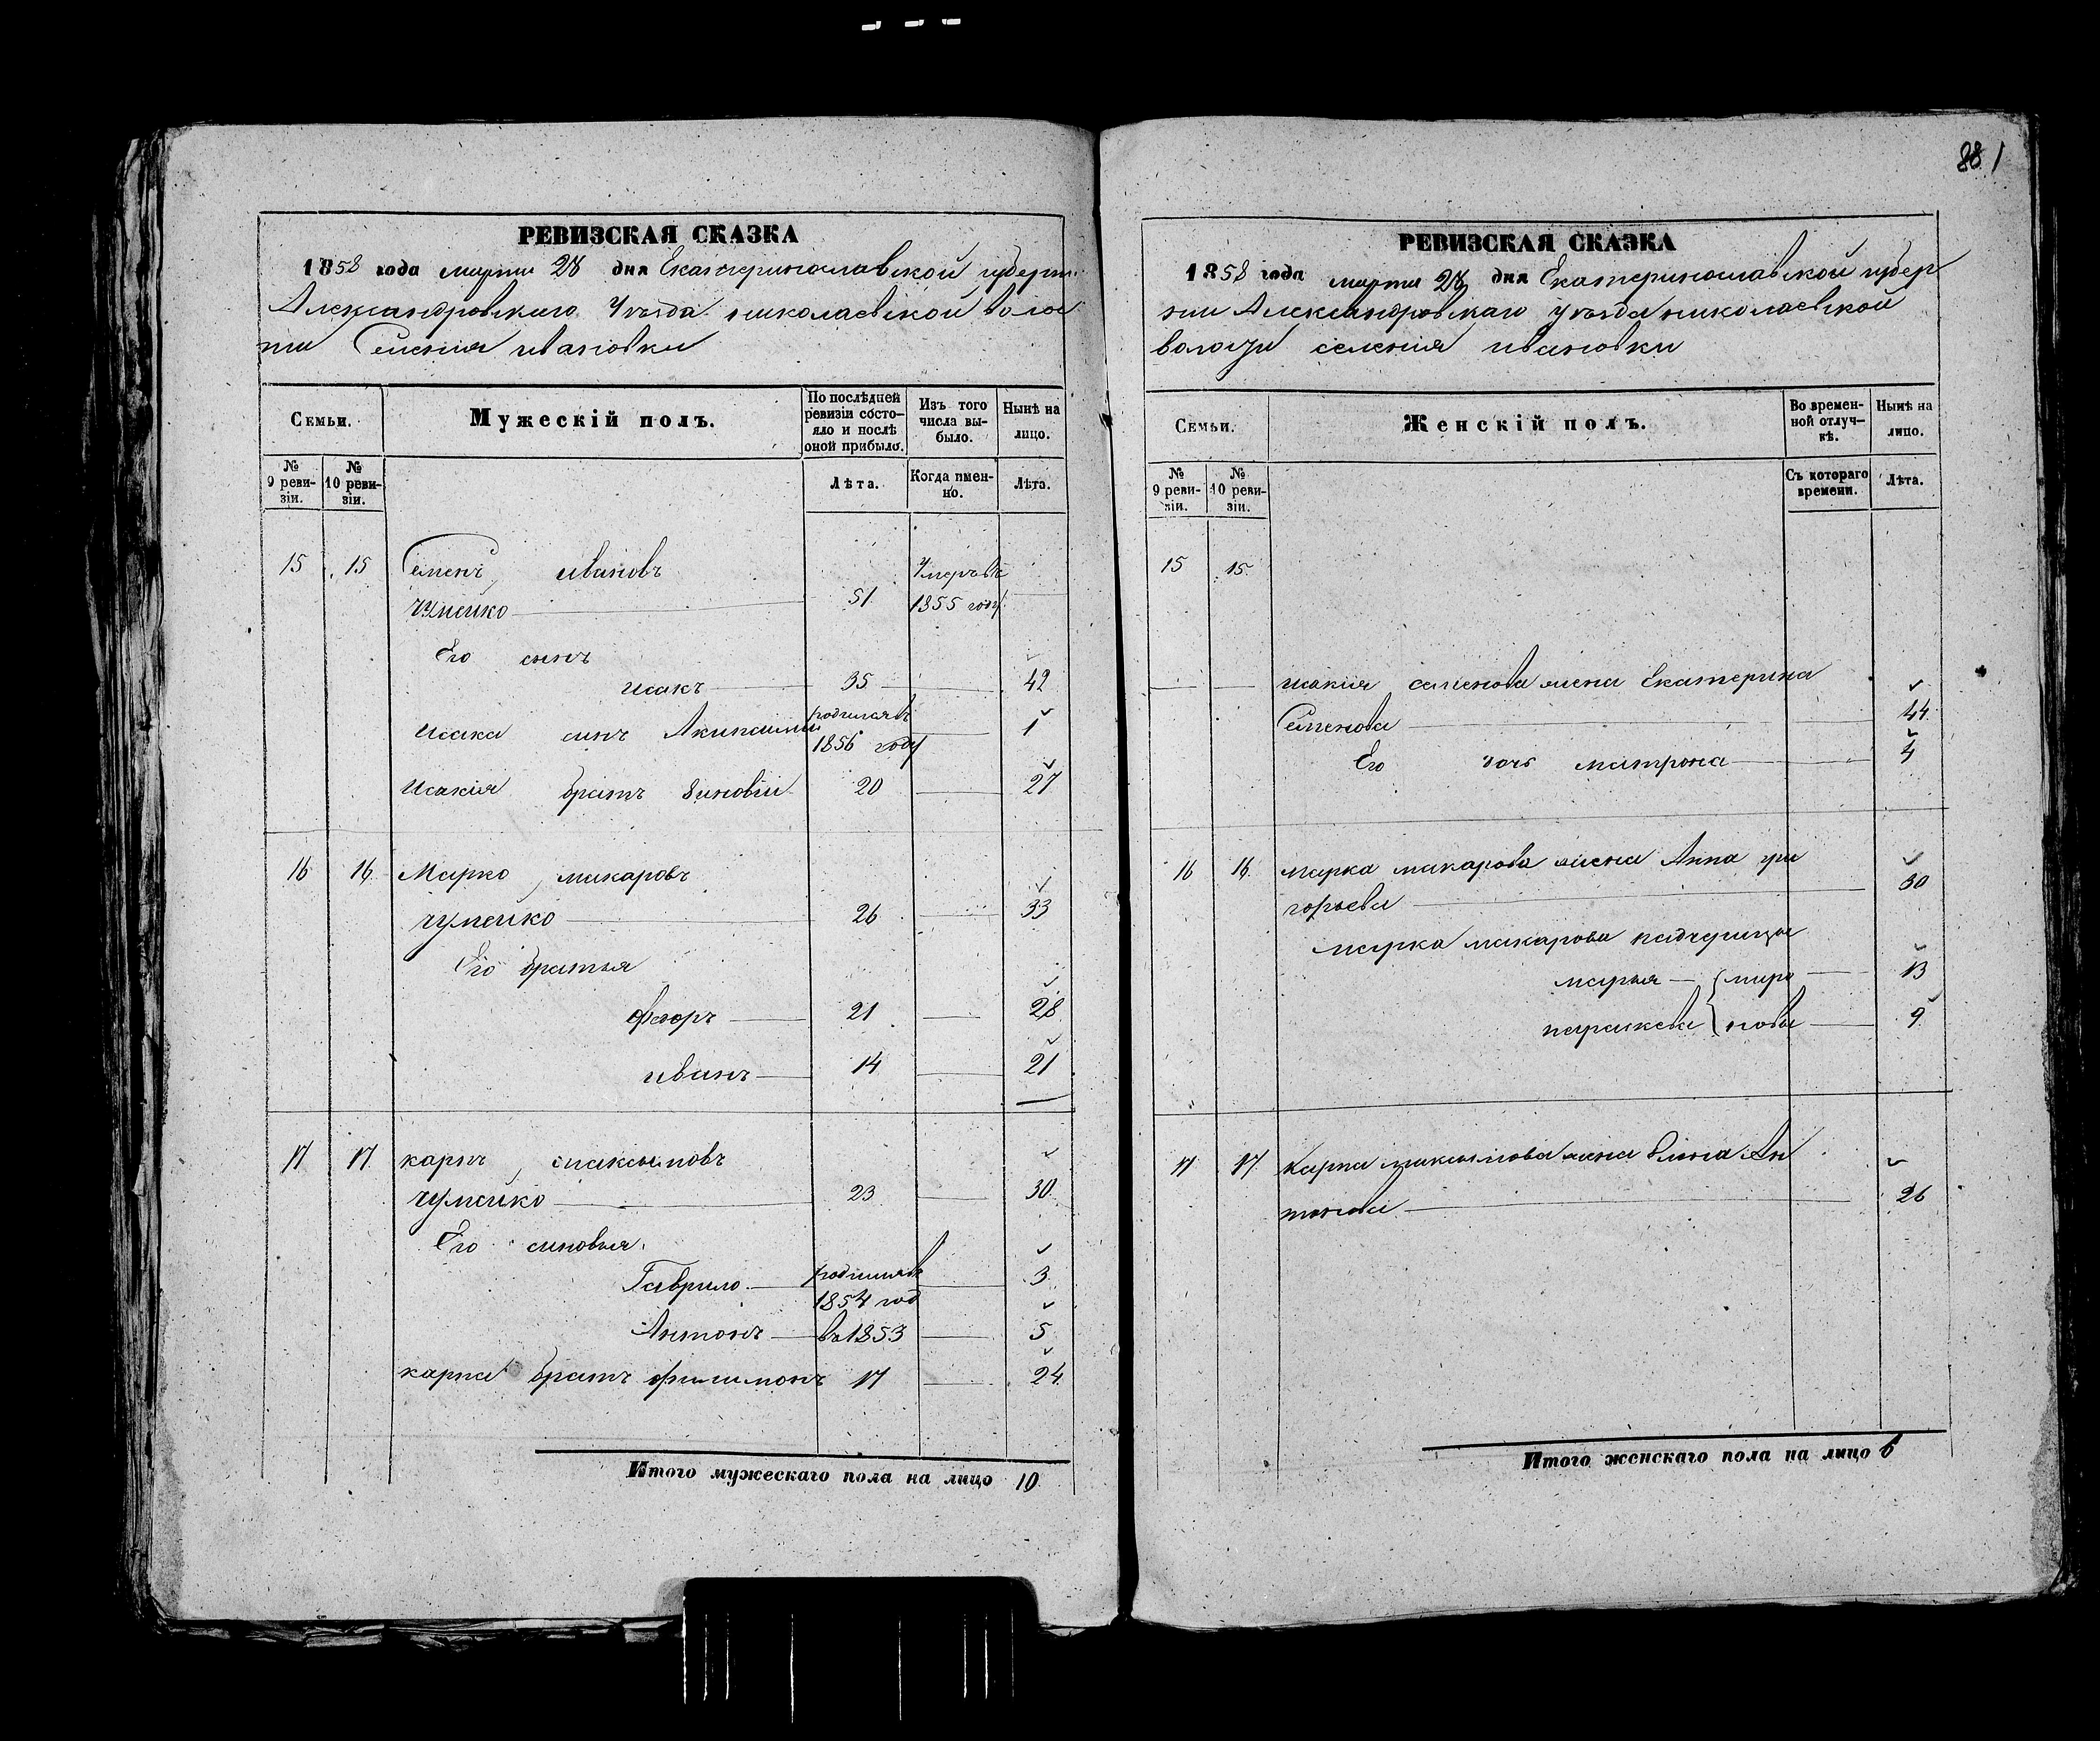 88 1
РЕВИЗСКАЯ СКАЗКА
1858 года марта 28 дня Екатеринославской губерн
Александровскаго Уезда николаевской волос
ти Селения ивановки
Семьи.
Мужескій полъ.
По послѣдней ревизіи состояло и послѣ оной прибыло.
Изъ того числа выбыло.
Нынѣ на лицо.
№ 9 ревизіи.
№ 10 ревизіи.
Лѣта.
Когда имено.
Лѣта.
15 15 Семенъ ивановъ Умеръ въ
чумейко 51 1855 году
Его сынъ
исакъ 35 42
исака синъ родился въ 1
1856 году
исакія братъ зиновій 20 27
16 16 Марко макаровъ
чумейко 26 33
Его братья
Фегоръ 21 28
иванъ 14 21
17 17 карпъ максимовъ
чумейко 23 30
Его синовья
Гаврило родился 3
1854 год
Антонъ въ 1853 5
карпа братъ филимонъ 17 24
Итого мужескаго пола на лицо 10
РЕВИЗСКАЯ СКАЗКА
1858 года марта 28 дня Екатеринославской губер
нии Александровскаго уезда николаевской
волости селения ивановки
Семьи.
Женскій полъ.
Во временной отлучкѣ.
Нынѣ на лицо.
№ 9 ревизіи.
№ 10 ревизіи.
Съ котораго времени.
Лѣта.
15 15
исакія семенова жена Екатерина
Семенова 44
Его дочь матрона 4
16 16 марка макарова жена Анна гри
горьева 30
марка макарова падчерицы
марья { миро 13
параскева { нова 9
17 17 Карпа максимова жена Елена Ан
тонова 26
Итого женскаго пола на лицо 6